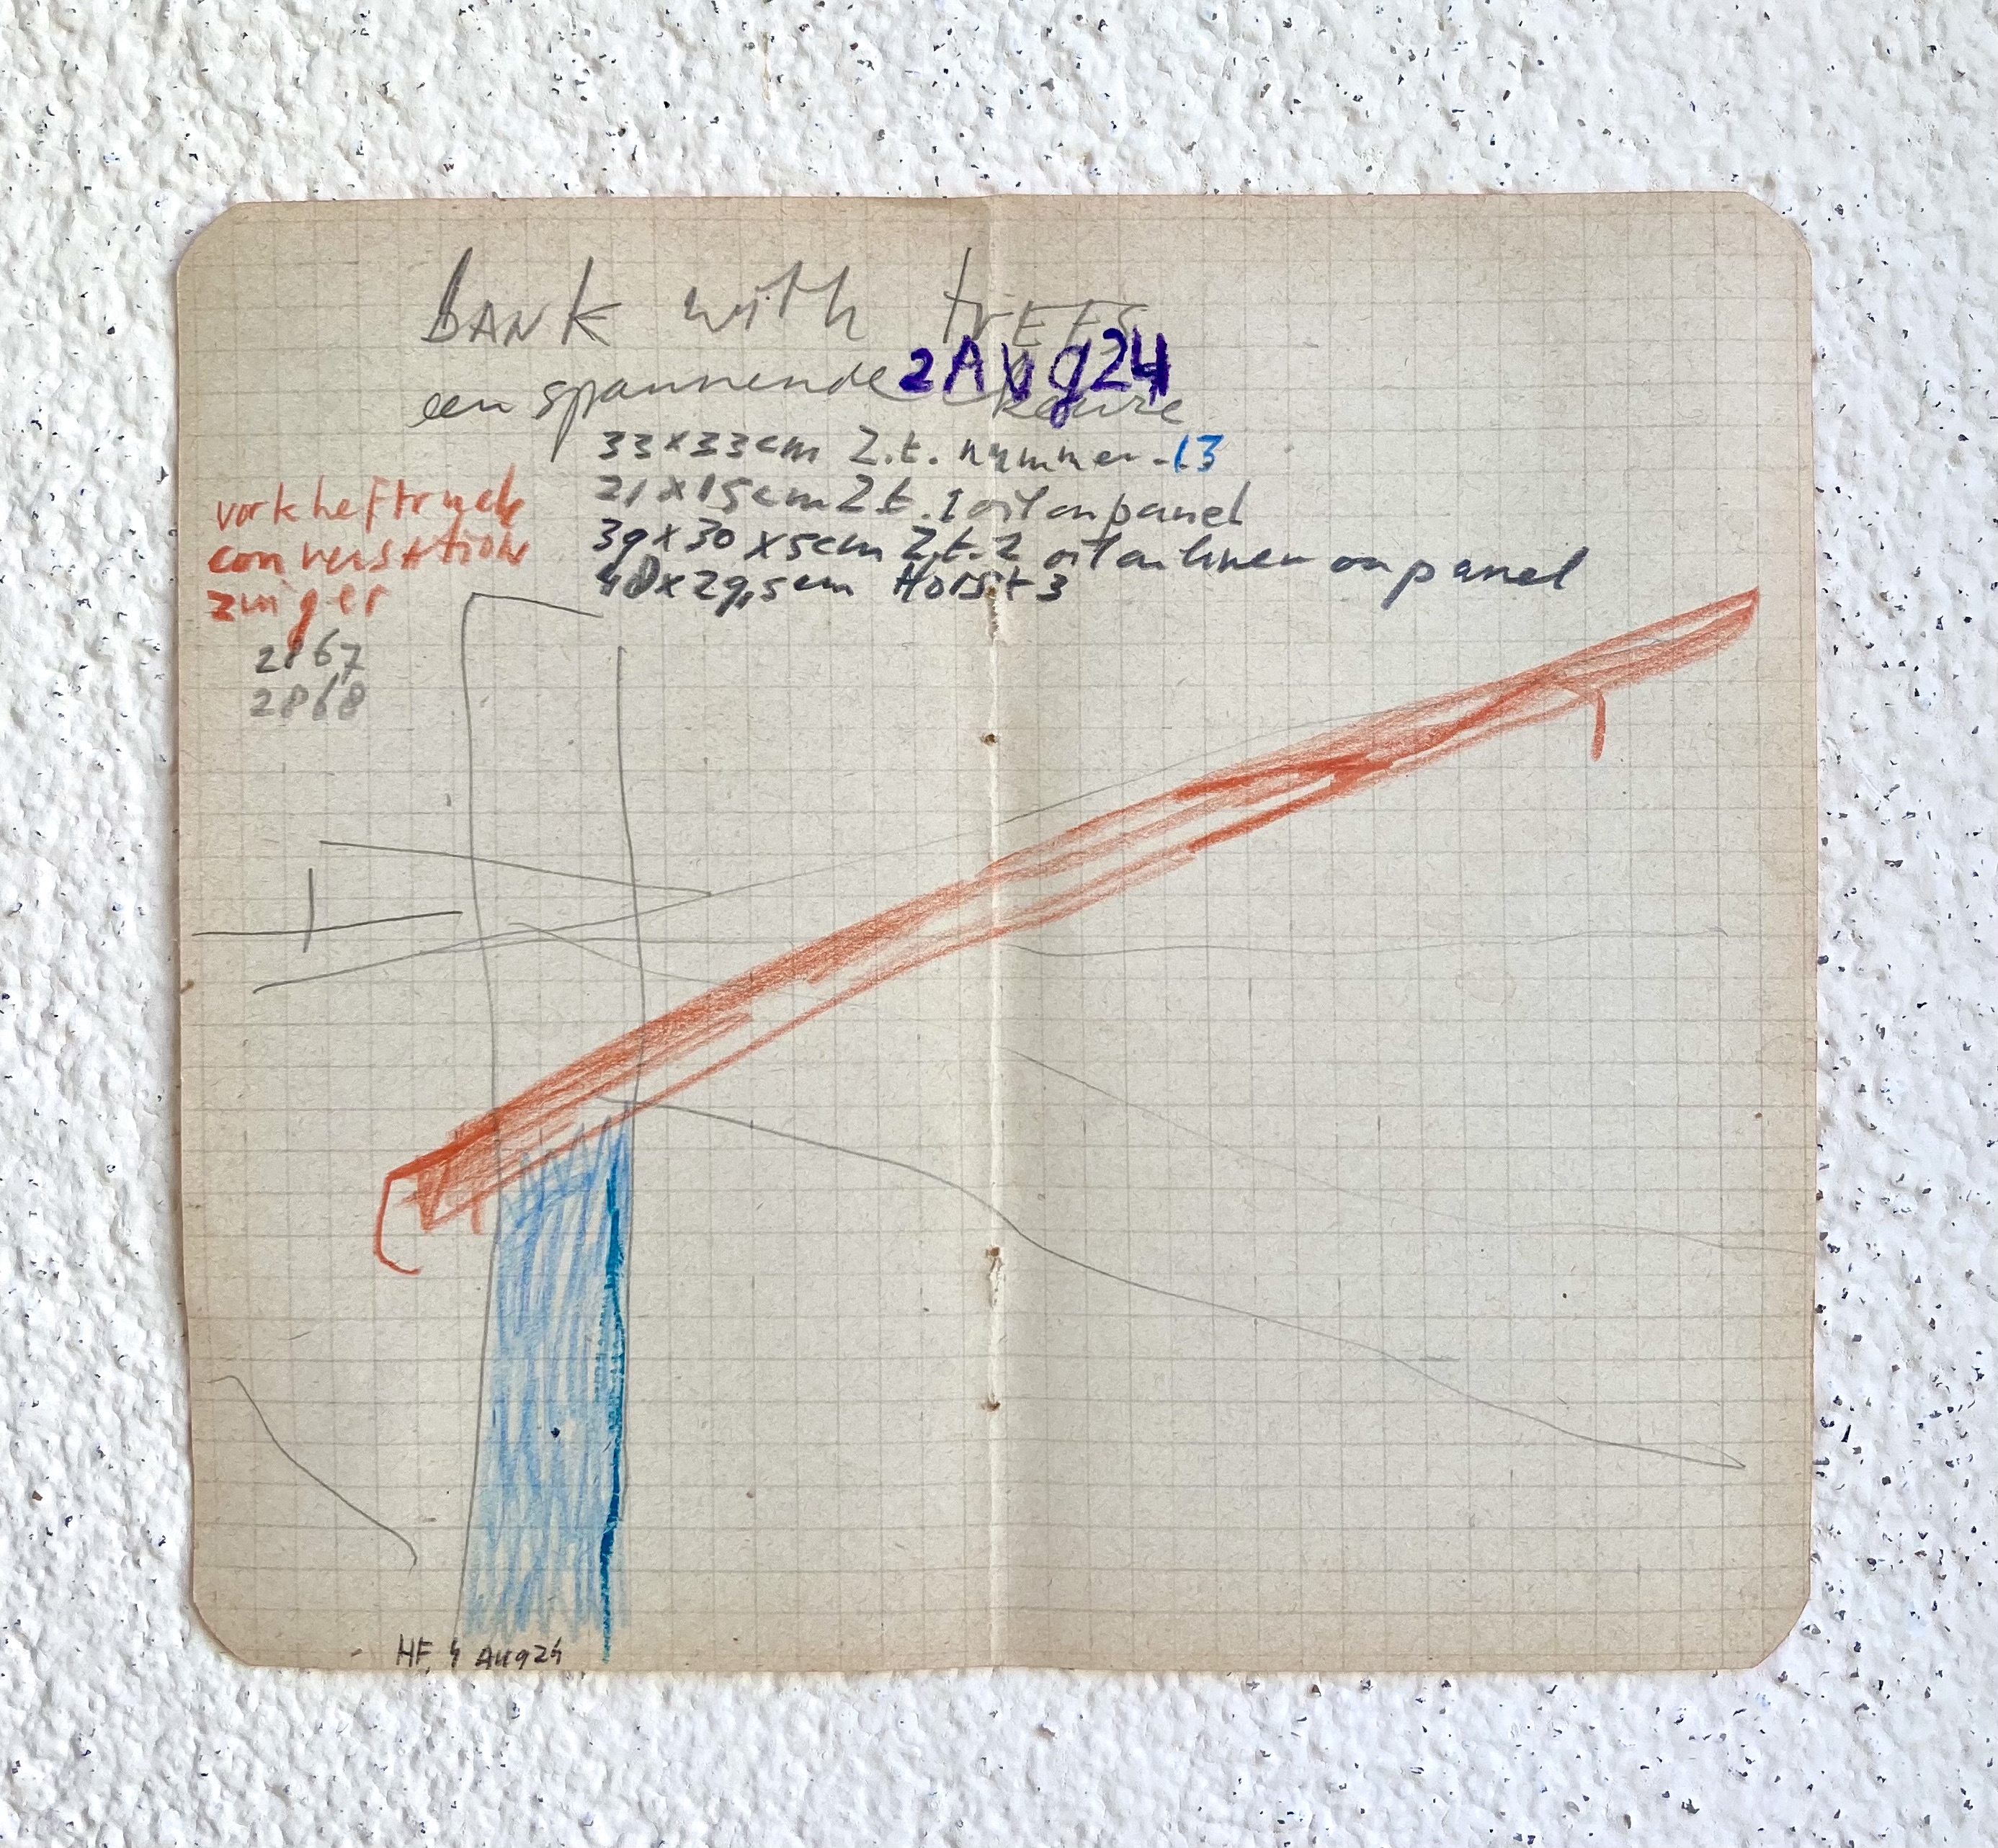 bANk with trEES
een spannende keuze
2Aug24
33x33cm Z.t. nummer 13
21x15cm Z t. 1 oil on panel
39x30x5cm Z.t. 2 oil on linen on panel
40x29,5cm Horst 3
vorkheftruck
conversation
zwiger
2867
2868
HF, 4 Aug24